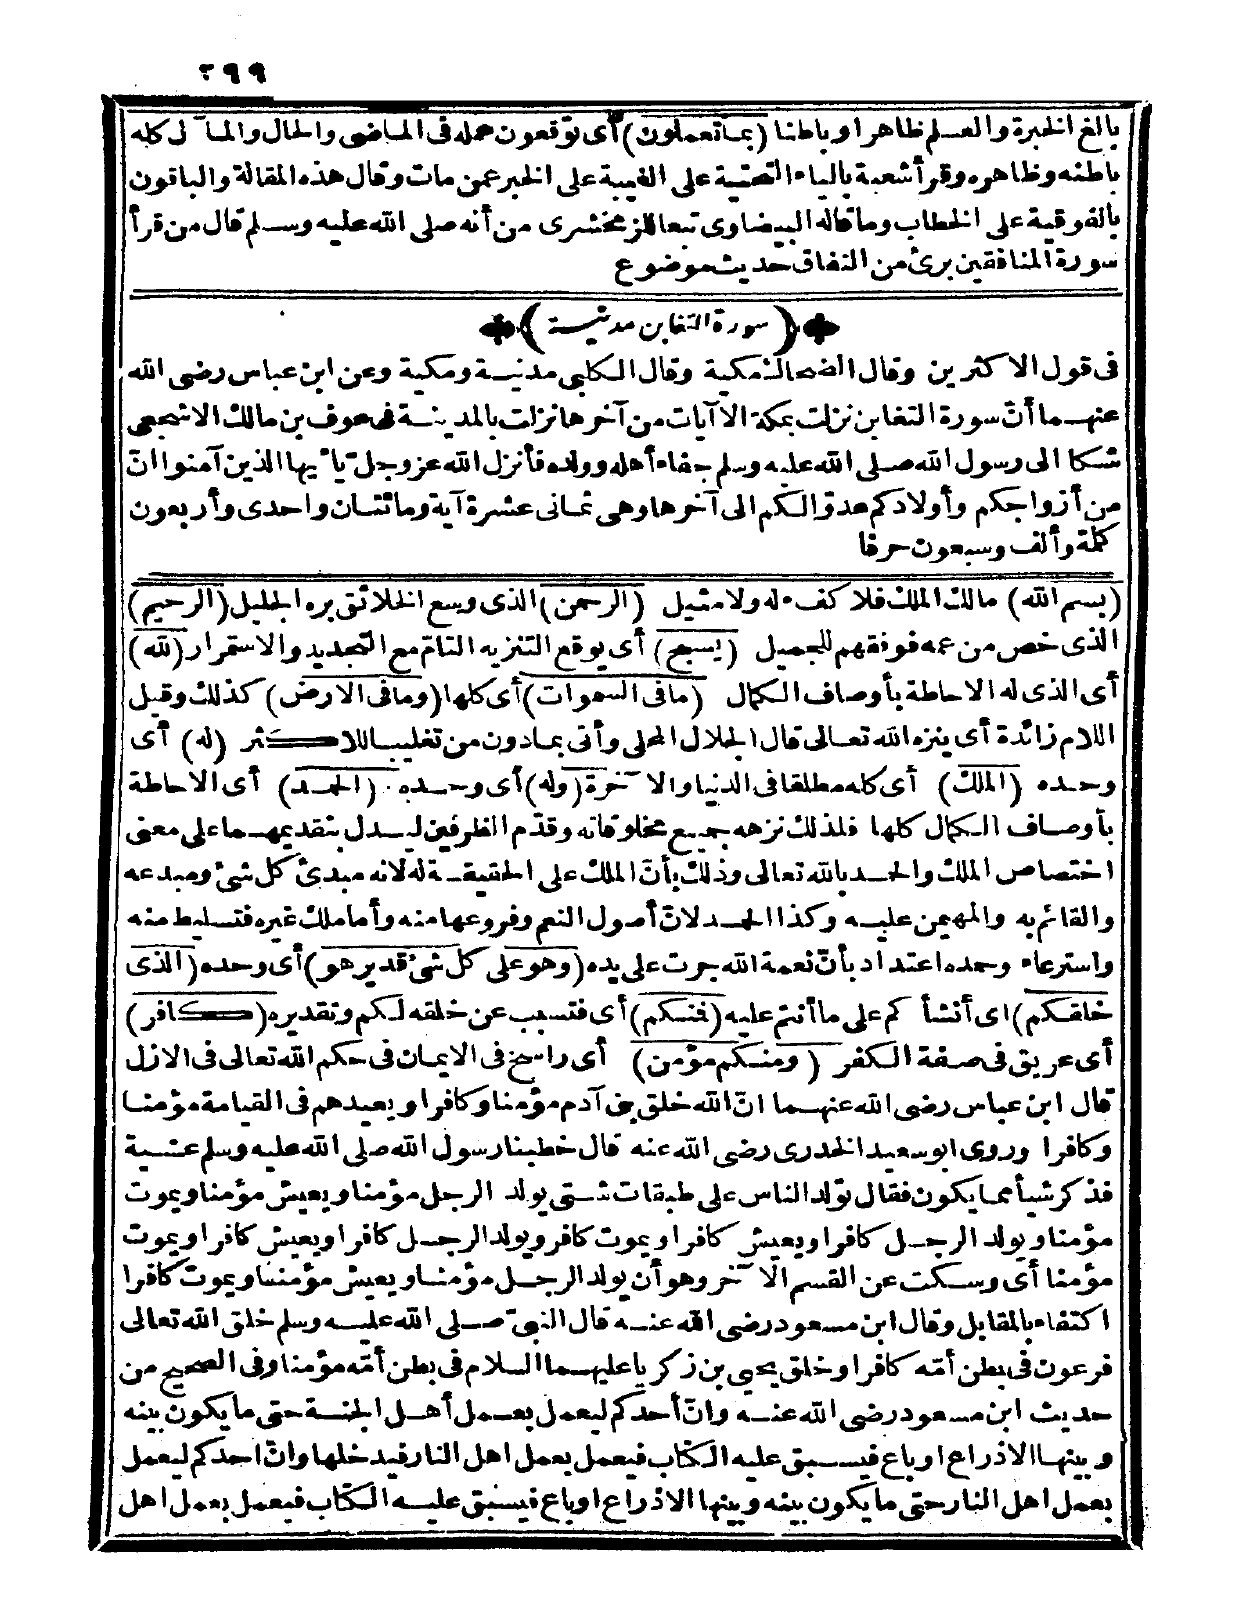 ٢٩٩
بالغ الخبرة والعلم ظاهرا وباطنا (بما تعملون) أى توقعون عمله فى الماضى والحال والمآل كله
باطنه وظاهره وقرأ شعبة بالياء التحتية على الغيبة على الخبر عمن مات وقال هذه المقالة والباقون
بالفوقية على الخطاب وما قاله البيضاوى تبعا للزمخشرى من أنه صلى الله عليه وسلم قال من قرأ
سورة المنافقين برئ من النفاق حديث موضوع
(سورة التغابن مدنية)
فى قول الاكثرين وقال الضحاك مكية وقال الكلبى مدنية ومكية وعن ابن عباس رضى الله
عنهما أنّ سورة التغابن نزلت بمكة الا آيات من آخرها نزلت بالمدينة فى عوف بن مالك الاشجعى
شكا الى رسول الله صلى الله عليه وسلم جفاء أهله وولده فأنزل الله عز وجل يا أيها الذين آمنوا انّ
من أزواجكم وأولادكم عدوّا لكم الى آخرها وهى ثمانى عشرة آية ومائتان واحدى وأربعون
كلمة وألف وسبعون حرفا
(بسم الله) مالك الملك فلا كفء له ولا مثيل (الرحمن) الذى وسع الخلائق بره الجليل (الرحيم)
الذى خص من عمه فوفقهم للجميل (يسبح) أى يوقع التنزيه التامّ مع التجديد والاستمرار (لله)
أى الذى له الاحاطة بأوصاف الكمال (ما فى السموات) أى كلها (وما فى الارض) كذلك وقيل
اللام زائدة أى ينزه الله تعالى قال الجلال المحلى وأتى بما دون من تغليبا للاكثر (له) أى
وحده (الملك) أى كله مطلقا فى الدنيا والآخرة (وله) أى وحده (الحمد) أى الاحاطة
بأوصاف الكمال كلها فلذلك نزهه جميع مخلوقاته وقدّم الظرفين ليدل بتقديمهما على معنى
اختصاص الملك والحمد بالله تعالى وذلك بأنّ الملك على الحقيقة له لانه مبدئ كل شئ ومبدعه
والقائم به والمهيمن عليه وكذا الحمد لانّ أصول النعم وفروعها منه وأما ملك غيره فتسليط منه
واسترعاء وحمده اعتداد بأنّ نعمة الله جرت على يده (وهو على كل شئ قدير هو) أى وحده (الذى
خلقكم) اى أنشأكم على ما أنتم عليه (فمنكم) أى فتسبب عن خلقه لكم وتقديره (كافر)
أى عريق فى صفة الكفر (ومنكم مؤمن) أى راسخ فى الايمان فى حكم الله تعالى فى الازل
قال ابن عباس رضى الله عنهما انّ الله خلق بنى آدم مؤمنا وكافرا ويعيدهم فى القيامة مؤمنا
وكافرا وروى ابو سعيد الخدرى رضى الله عنه قال خطبنا رسول الله صلى الله عليه وسلم عشية
فذكر شيأ مما يكون فقال تولد الناس على طبقات شتى يولد الرجل مؤمنا ويعيش مؤمنا ويموت
مؤمنا ويولد الرجل كافرا ويعيش كافرا ويموت كافر ويولد الرجل كافرا ويعيش كافرا ويموت
مؤمنا أى وسكت عن القسم الآخر وهو أن يولد الرجل مؤمنا ويعيش مؤمنا ويموت كافرا
اكتفاء بالمقابل وقال ابن مسعود رضى الله عنه قال النبىّ صلى الله عليه وسلم خلق الله تعالى
فرعون فى بطن أمّه كافرا وخلق يحيى بن زكريا عليهما السلام فى بطن أمّه مؤمنا وفى الصحيح من
حديث ابن مسعود رضى الله عنه وانّ أحدكم ليعمل بعمل أهل الجنة حتى ما يكون بينه
وبينها الا ذراع او باع فيسبق عليه الكتاب فيعمل بعمل اهل النار فيدخلها وانّ احدكم ليعمل
بعمل اهل النار حتى ما يكون بينه وبينها الا ذراع او باع فيسبق عليه الكتاب فيعمل بعمل اهل